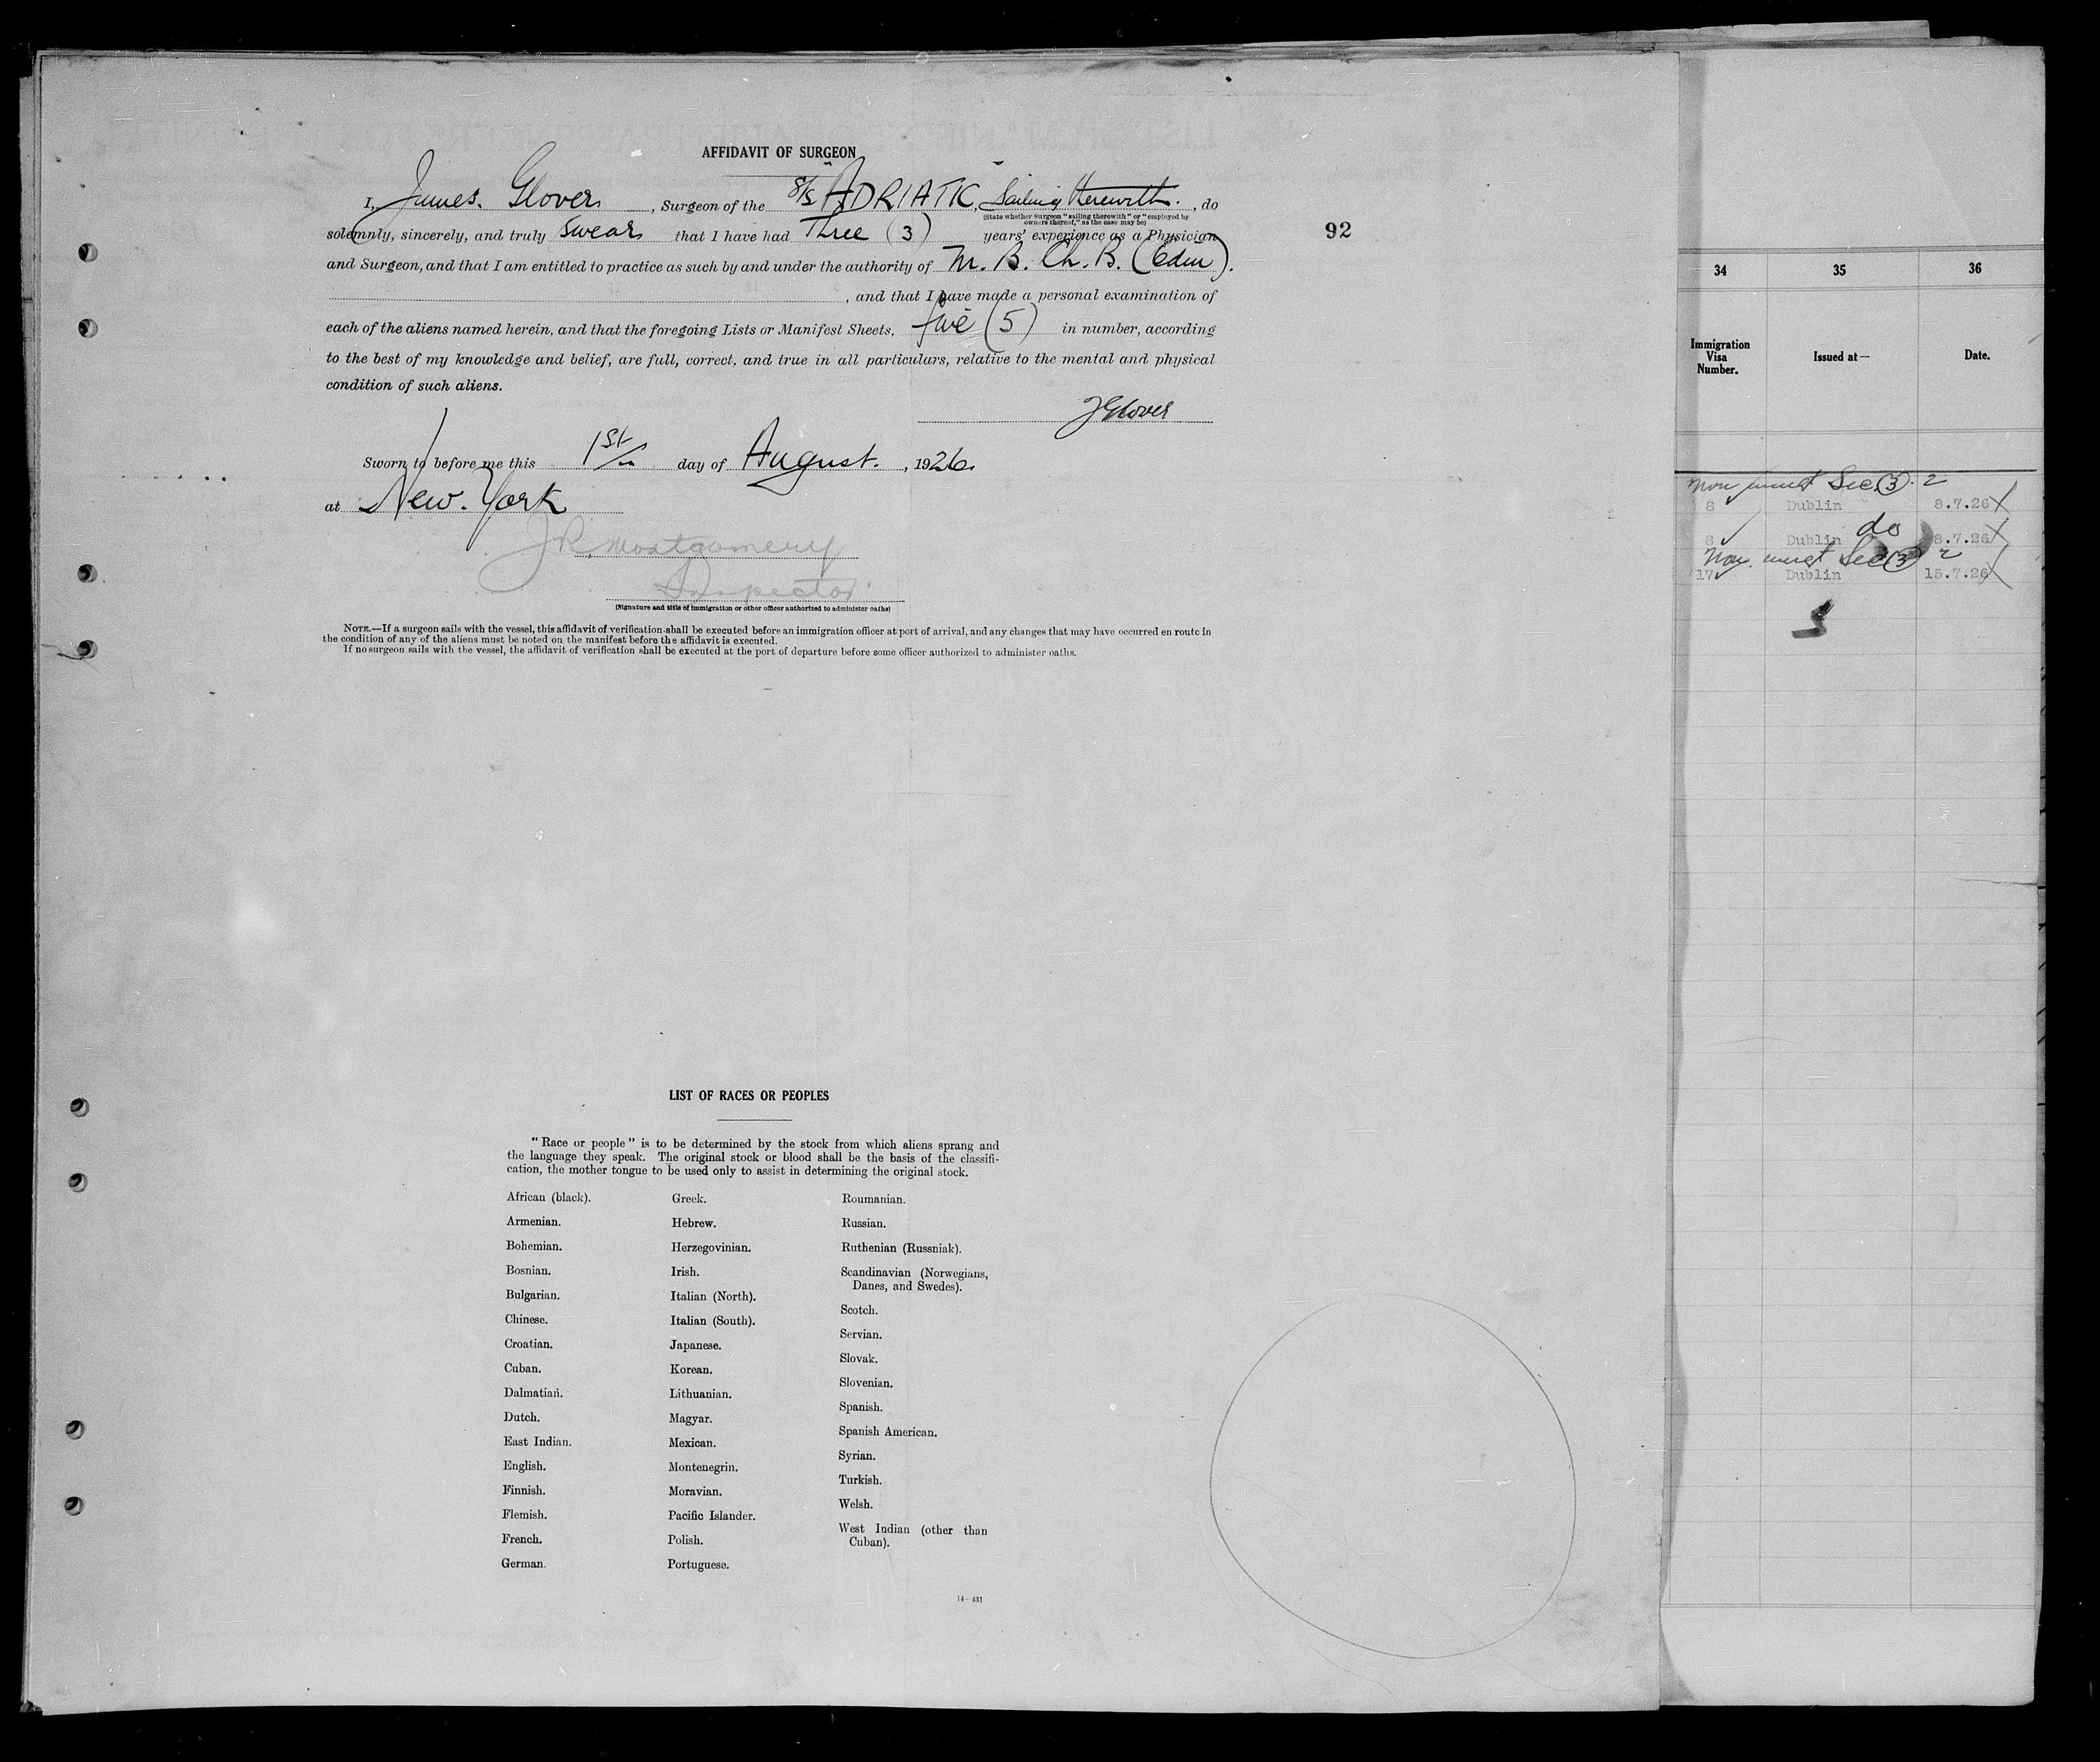 AFFIDAVIT OF SURGEON
I, James. Glover, Surgeon of the S/S ADRIATIC, Sailing therewith., do
(State whether Surgeon "sailing therewith" or "employed by
owners thereof," as the case may be)
solemnly, sincerely, and truly Swear that I have had Three (3) years' experience as a Physician
and Surgeon, and that I am entitled to practice as such by and under the authority of M. B. Ch. B. (Edin).
, and that I have made a personal examination of
each of the aliens named herein, and that the foregoing Lists or Manifest Sheets, five (5) in number, according
to the best of my knowledge and belief, are full, correct, and true in all particulars, relative to the mental and physical
condition of such aliens.
J Glover
Sworn to before me this 1st day of August., 1926.
at New. York
J R. Montgomery
Inspector
(Signature and title of immigration or other officer authorized to administer oaths)
NOTE.—If a surgeon sails with the vessel, this affidavit of verification shall be executed before an immigration officer at port of arrival, and any changes that may have occurred en route in
the condition of any of the aliens must be noted on the manifest before the affidavit is executed.
If no surgeon sails with the vessel, the affidavit of verification shall be executed at the port of departure before some officer authorized to administer oaths.
92
LIST OF RACES OR PEOPLES
"Race or people" is to be determined by the stock from which aliens sprang and
the language they speak. The original stock or blood shall be the basis of the classifi-
cation, the mother tongue to be used only to assist in determining the original stock.
African (black).
Armenian.
Bohemian.
Bosnian.
Bulgarian.
Chinese.
Croatian.
Cuban.
Dalmatian.
Dutch.
East Indian.
English.
Finnish.
Flemish.
French.
German.
Greek.
Hebrew.
Herzegovinian.
Irish.
Italian (North).
Italian (South).
Japanese.
Korean.
Lithuanian.
Magyar.
Mexican.
Montenegrin.
Moravian.
Pacific Islander.
Polish.
Portuguese.
Roumanian.
Russian.
Ruthenian (Russniak).
Scandinavian (Norwegians,
Danes, and Swedes).
Scotch.
Servian.
Slovak.
Slovenian.
Spanish.
Spanish American.
Syrian.
Turkish.
Welsh.
West Indian (other than
Cuban).
14—431
34 35 36
Immigration
Visa
Number.
Issued at—
Date.
Non immgt Sec. 3. 2
8 Dublin 8.7.26
do
8 Dublin 8.7.26
Non. immgt Sec 3 2
17 Dublin 15.7.26